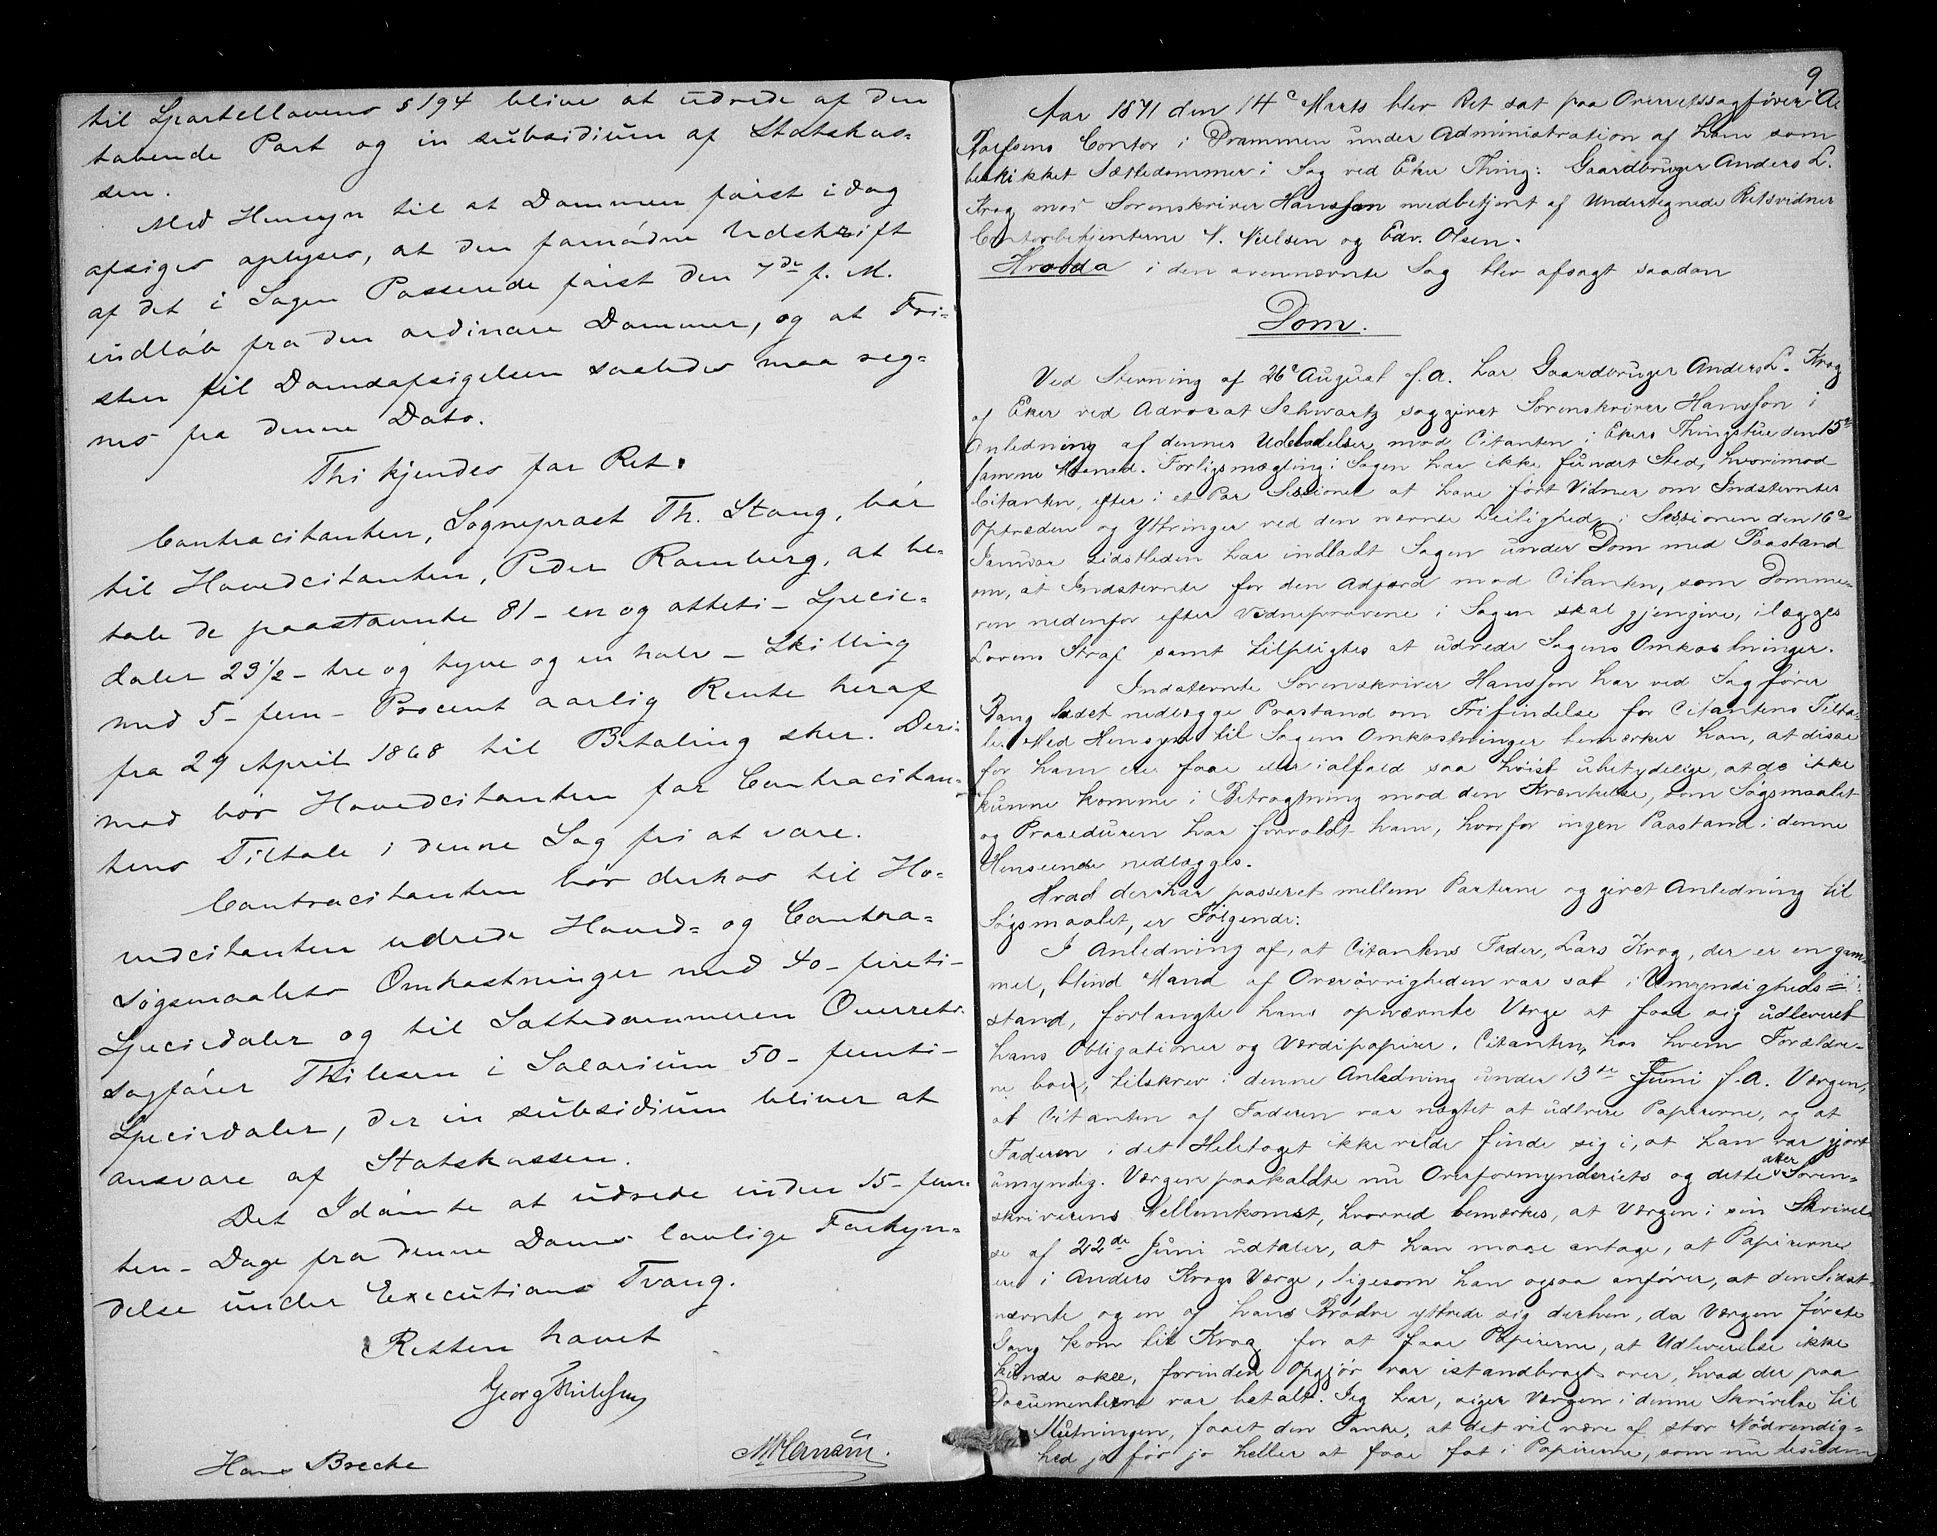 til Sportellovens § 194 blive at udrede af den
tabende Part og in subsidium af Statskas-
sen.
Med Hensyn til at Dommen først idag
afsiges oplyses, at den fornødne Udskrift
af det i Sagen Passerede først den 7de f. M.
indløb fra den ordinære Dommer, og at Fri-
sten til Domsafsigelsen saaledes maa reg-
nes fra denne Dato.
Thi kjendes for Ret:
Contracitanten, Sogneprest Th. Stang, bør
til Hovedcitanten, Peder Ramberg, at be-
tale de paastævnte 81 - en og otteti - Specie-
daler 23 1/2 - tre og tyve og en halv - Skilling
med 5 - fem - Procent aarlig Rente heraf
fra 29 April 1868 til Betaling sker. Deri-
mod bør Hovedcitanten for Contracitan-
tens Tiltale i denne Sag fri at være.
Contracitanten bør derhos til Ho-
vedcitanten udrede Hoved- og Contra-
søgsmaalets Omkostninger med 40 - fireti -
Speciedaler og til Sættedommeren Overrets-
sagfører Thilesen i Salarium 50 - femti -
Speciedaler, der in subsidium bliver at
ansvare af Statskassen.
Det Idømte at udrede inden 15 - fem-
ten - Dage fra denne Doms lovlige Forkyn-
delse under Executions Tvang.
Retten hævet
Georg Thilesen
Hans Brecke
9
Aar 1871 den 14de Marts blev Ret sat paa Overretssagfører
Contor i Drammen under Administration af ham som
beskikket Sættedommer i Sag ved Eker Thing: Gaardbruger Anders L.
Krog mod Sorenskriver Hansson medbetjent af Undertegnede Retsvidner
Contorbetjenterne N. Nielsen og Edv. Olsen.
Hvorda i den ovennævnte Sag blev afsagt saadan
Dom.
Ved Stevning af 26de August f. a. har Gaardbruger Anders L. Krog
af Eker ved Advocat Schwartz saggivet Sorenskriver Hansson i
Anledning af dennes Udladelser mod Citanten i Ekers Thingstue den 15de
samme Maaned. Forligsmægling i Sagen har ikke fundet Sted, hvorimod
Citanten, efter i et Par Sessioner at have ført Vidner om Indstevntes
Optræden og Yttringer ved den nævnte Leilighed, i Sessionen den 16de
Januar sidstleden har indladt Sagen under Dom med Paastand
om, at Indstevnte for den Adfærd mod Citanten, som Domme-
ren nedenfor efter Vidneprovene i Sagen skal gjengive, ilægges
Lovens Straf samt tilpligtes at udrede Sagens Omkostninger.
Indstevnte Sorenskriver Hansson har ved Sagfører
Bang ladet nedlægge Paastand om Frifindelse for Citantens Tilta-
le. Med Hensyn til Sagens Omkostninger bemærker han, at disse
for ham ere faae eller ialfald saa høist ubetydelige, at de ikke
kunne komme i Betragtning mod den Krænkelse, som Søgsmaalet
og Proceduren har forvoldt ham, hvorfor ingen Paastand i denne
Henseende nedlægges.
Hvad der har passeret mellem Parterne og givet Anledning til
Søgsmaalet, er Følgende:
I Anledning af, at Citantens Fader, Lars Krog, der er en gam-
mel, blind Mand af Overøvrigheden var sat i Umyndigheds-
stand, forlangte hans opnævnte Værge at faae sig udleveret
hans Obligationer og Værdipapirer. Citanten, hos hvem Forældre-
ne boe, tilskrev i denne Anledning under 13de Juni f. a. Værgen,
at Citanten af Faderen var nægtet at udlevere Papirerne, og at
Faderen i det Heletaget ikke vilde finde sig i, at han var gjort
umyndig. Værgen paakaldte nu Overformynderiets og dette atter Soren-
skriverens Mellemkomst, hvorved bemærkes, at Værgen i sin Skrivel-
se af 22de Juni udtaler, at han maae antage, at Papirerne
ere i Anders Krogs Værge, ligesom han ogsaa anfører, at den Sidst-
nævnte og en af hans Brødre yttrede sig derhen, da Værgen første
Gang kom til Krog for at faae Papirerne, at Udleverelse ikke
kunde skee, forinden Opgjør var istandbragt over, hvad der paa
Documenterne var betalt. Jeg har, siger Værgen i denne Skrivelse til
Slutningen, faaet den Tanke, at det vil være af stor Nødvendig-
hed jo før jo heller at faae fat i Papirerne, som nu desuden